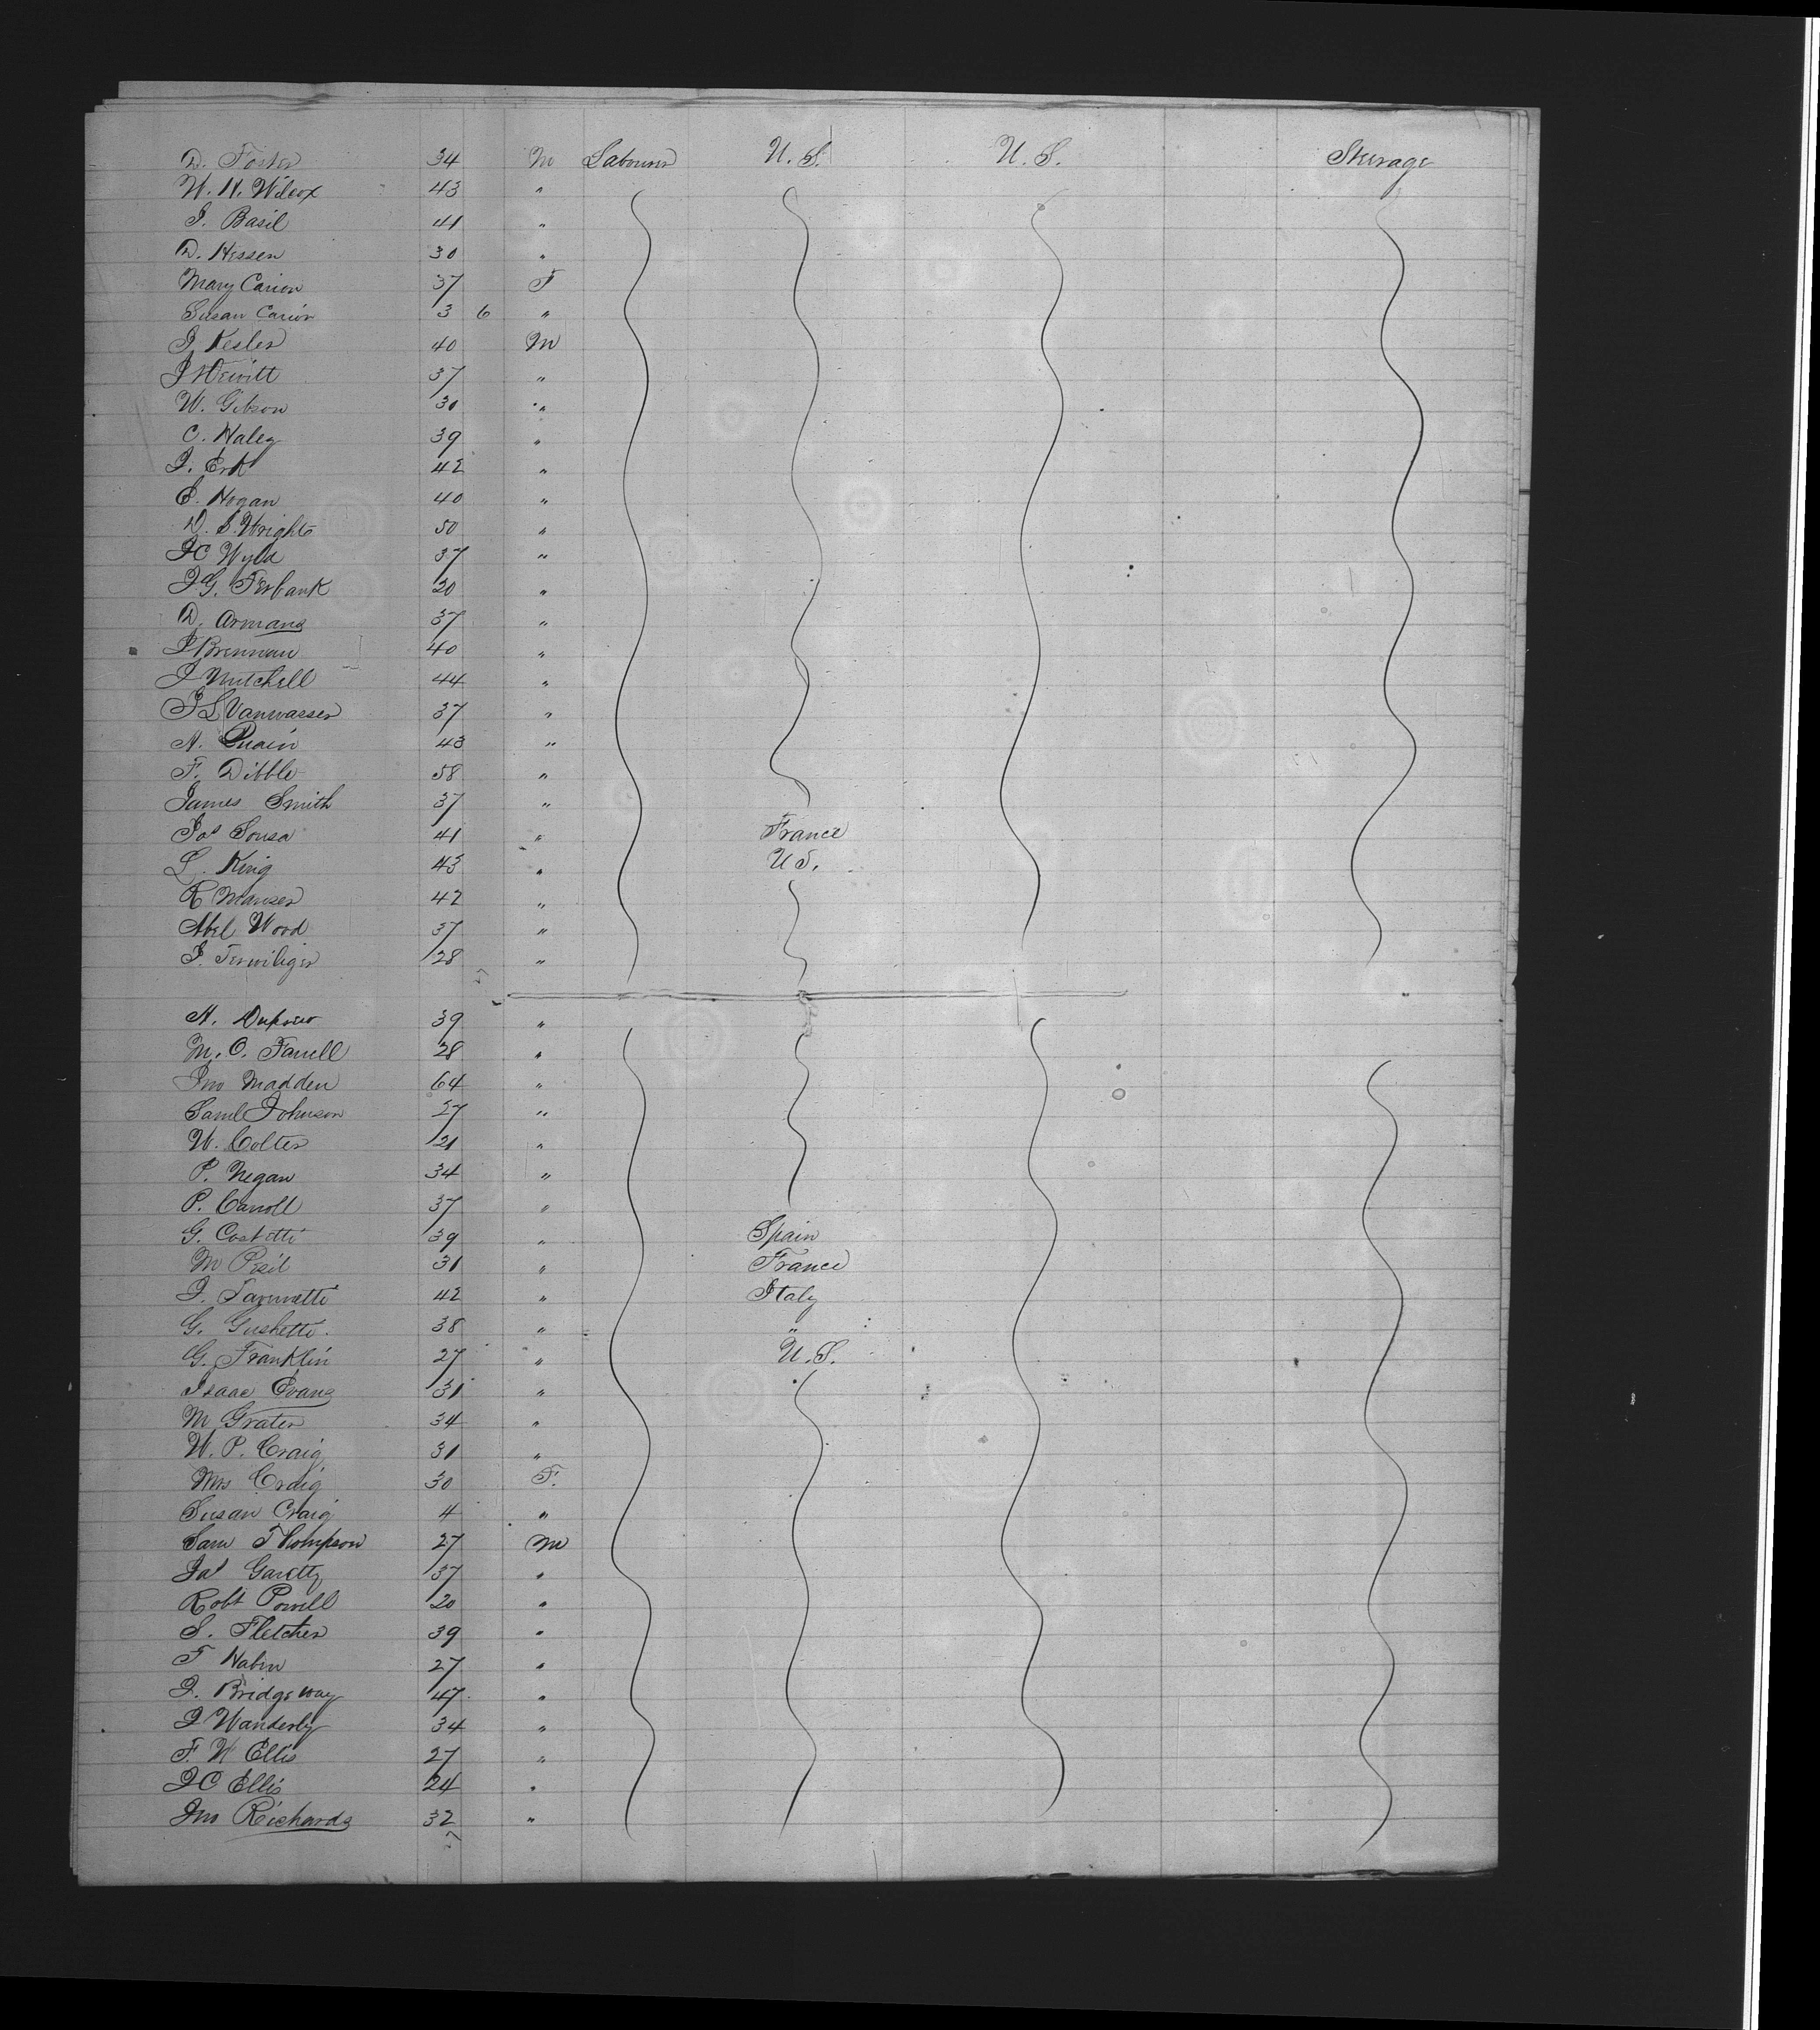 D. Foster 34 M Labourer U.S. U.S. Steerage
W. H. Wilcox 43 "
J. Basil 41 "
D. Hessen 30 "
Mary Carion 37 F
Susan Carion 3 6 "
J. Kesler 40 M
J Hewitt 37 "
W. Gibson 30 "
C. Haley 39 "
J. Erk 42 "
E. Hogan 40 "
D. S. Wright 50 "
JC Wyld 37 "
J G. Firbank 20 "
D. Armang 37 "
J Brennan 40 "
J Mitchell 44 "
J L Vanwasser 37 "
A. Quain 43 "
F. Dibble 58 "
James Smith 37 "
Jos Sousa 41 " France
L. King 43 " U S.
R Manser 42 "
Abel Wood 37 "
J. Terwiliger 28 "
A. 39 "
M. O. Farrell 28 "
Jno Madden 64 "
Saml Johnson 27 "
W. Colter 21 "
P. Negan 34 "
P. Carroll 37 "
G. Costetti 39 " Spain
M 31 " France
J. 42 " Italy
G. Gushetti. 38 " "
G. Franklin 27 " U.S.
Isaac Evans 31 "
M Grater 34 "
W. P. Craig 31 "
Mrs Craig 30 F.
Susan Craig 4 "
Sam Thompson 27 M
Jas Garetty 37 "
Robt Powell 20 "
S. Fletcher 39 "
F Habin 27 "
J. Bridgeway 47 "
J Wanderly 34 "
F. W Ellis 27 "
J C Ellis 24 "
Jno Richards 32 "